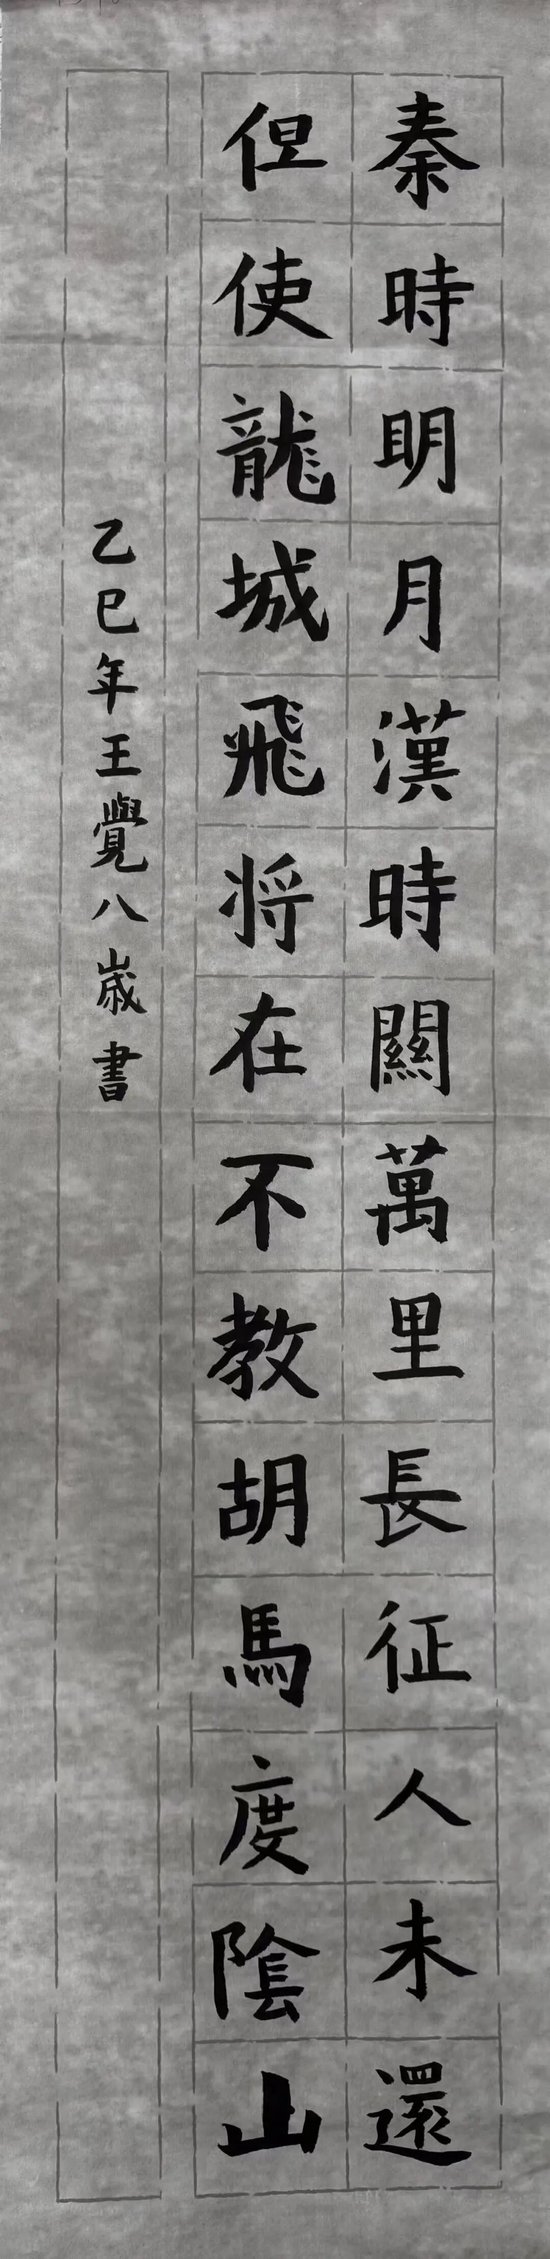 秦時明月漢時關萬里長征人未還
但使龍城飛将在不教胡馬度陰山
乙巳年王覺八歲書